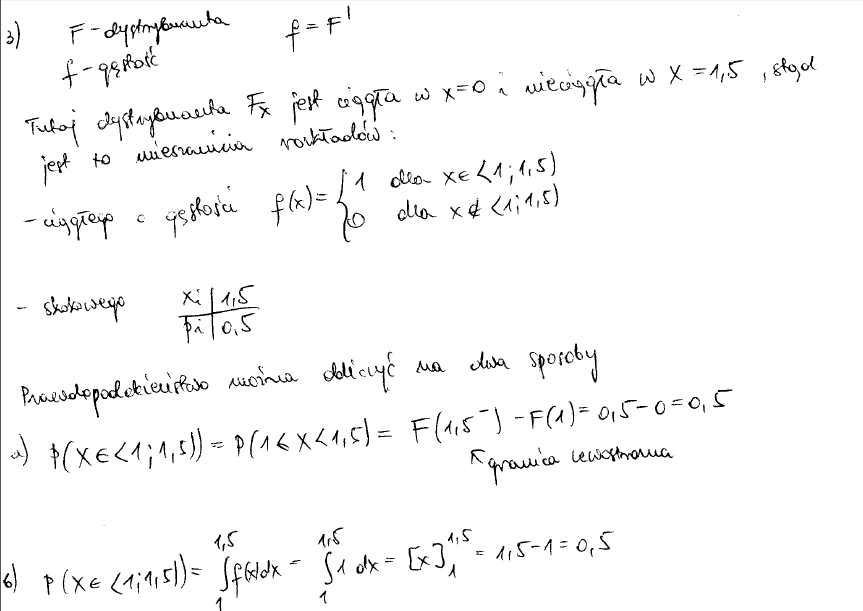 3) F - dystrybuanta f = F'
f - gęstość
Tutaj dystrybuanta Fx jest ciągła w x=0 i nieciągła w x=1,5, stąd
jest to mieszanina rozkładów:
- ciągłego o gęstości f(x) = { 1 dla x∈<1;1,5)
0 dla x∉<1;1,5)
- skokowego xi | 1,5
pi | 0,5
Prawdopodobieństwo można obliczyć na dwa sposoby
a) P(X∈<1;1,5)) = P(1≤X<1,5) = F(1,5⁻) - F(1) = 0,5 - 0 = 0,5
↖ granica lewostronna
b) P(X∈<1;1,5)) = ∫₁^1,5 f(x)dx = ∫₁^1,5 1 dx = [x]₁^1,5 = 1,5 - 1 = 0,5